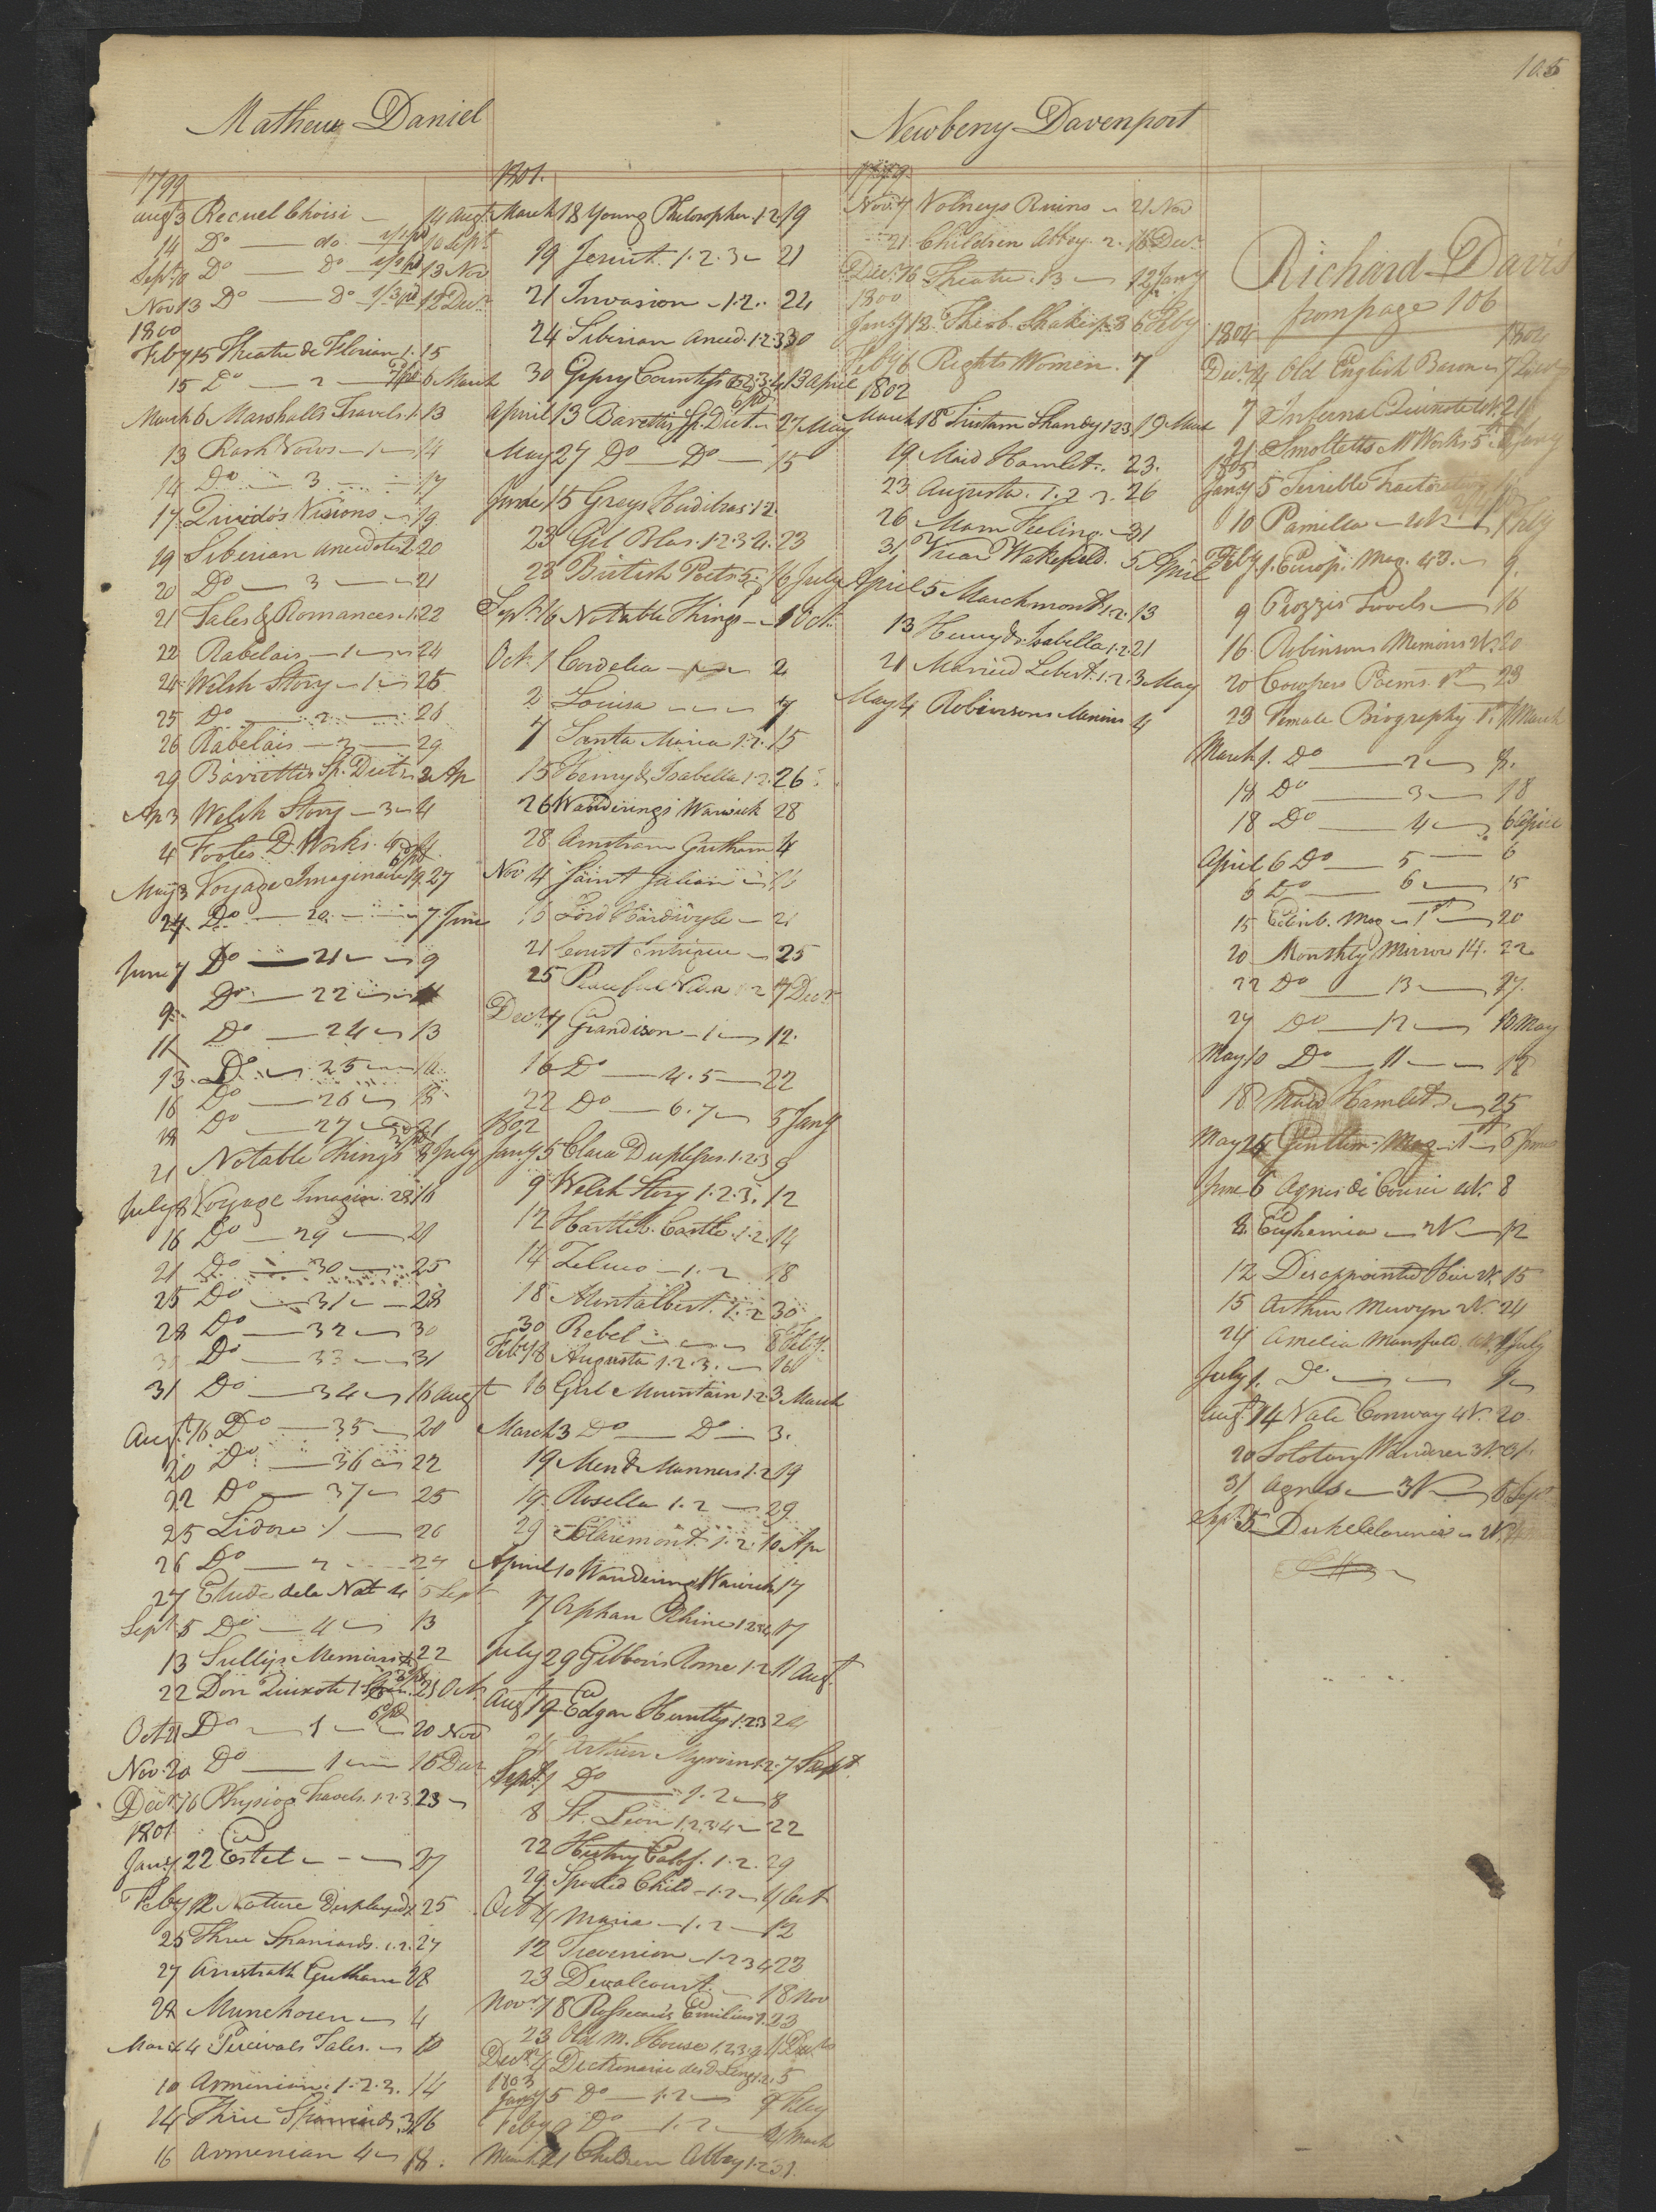 105
Mathew Daniel
1799
Augt 3 Recuel Choisi 14 Augt
14 Do do 10 Sept
Sept 10 Do Do 13 Nov
Nov 13 Do Do 12 Decr
1800
Feby 15 Theatre de Florian 1. 15
15 Do 2 6 March
March 6 Marshalls Travels 1. 13
13 Rash Vows 1 14
14 Do 3 17
17 Quividos Visions 19
19 Siberian Anecdotes 2 20
20 Do 3 21
21 Tales & Romances 1. 22
22 Rabelais 1 24
24 Welsh Story 1 25
25 Do 2 26
26 Rabelais 2 29
29 Barrettis Sp. Dict 3 Ap
Ap 3 Welsh Story 3 4
4 Footes D. Works
May 3 Voyage Imaginaire 19 27
27 Do 20 7 June
June 7 Do 21 9
9 Do 22
11 Do 24 13
13 Do 25 16
16 Do 26 18
18 Do 27 21
21 Notable Things 8 July
July 8 Voyage Imagin. 28 16
16 Do 29 21
21 Do 30 25
25 Do 31 28
28 Do 32 30
30 Do 33 31
31 Do 34 16 Augt
Augt 16 Do 35 20
20 Do 36 22
22 Do 37 25
25 Lidore 1 26
26 Do 2 27
27 Etude de la Nat 4 5 Sept
Sept 5 Do 4 13
13 Sullys Memoirs 22
22 Don Quixote 1 21 Oct
Oct 21 Do 1 20 Nov
Nov 20 Do 1 16 Decr
Decr 16 Physiog Travels. 1.2.3. 23
1801
Jany 22 Estel 27
Feby 12 Nature Displayed 25
25 Three Spaniards. 1.2. 27
27 Gutham 28
28 Munchosen 4
March 4 Percivals Tales. 10
10 Armenian. 1.2.3. 14
14 Three Spaniards. 3 16
16 Armenian 4 18.
1801.
March 18 Young Philosopher 1.2 19
19 Jesuit. 1.2.3 21
21 Invasion 1.2. 24
24 Siberian Anecd. 1.2.3 30
30 Gipsy Countess 1.2.3.4 13 April
April 13 Barettis Sp. Dict 27 May
May 27 Do Do 15
June 15 Greys Hudibras 1.2.
23 Gil Blas. 1.2.3.4. 23
23 British Poets 5. 16 July
Sept. 16 Notable Things 1 Oct.
Oct. 1 Cordelia 2
2 Louisa 7
7 Santa Maria 1.2. 15
15 Henry & Isabella 1.2. 26
26 Wanderings Warwick 28
28 Gutham 4
Nov 4 Saint Julian 16
16 Lord Hardwyle 21
21 Court Intrigue 25
25 1 2 7 Decr
Decr 7 Grandison 1 12.
16 Do 4.5 22
22 Do 6.7 5 Jany
1802
Jany 5 Clara Duplessis. 1.2.3 9
9 Welsh Story 1.2.3. 12
12 Hartleb. Castle. 1.2. 14
14 Zeluco 1.2 18
18 Montalbert. 1.2 30
30 Rebel 8 Feby
Feby 8 Augusta 1.2.3. 16
16 Girl Mountain 1.2 3 March
March 3 Do Do 3.
19 Men & Manners 1.2 19
19 Rosella 1.2 29
29 Claremont. 1.2. 10 Apr
April 10 Wandering Warwick 17
17 Orphan Rhine 1.2.3.4 17
July 29 Gibbons Rome 1.2 11 Augt.
Augt 19 Edgar Huntly 1.2.3 24
Arthur Myrvin 1.2. 7 Sept.
Sept. 7 Do 1.2 8
8 St. Leon 1.2.3.4 22
22 History 1.2. 29
29 Spoiled Child 1.2 4 Oct
Oct 4 Maria 1.2 12
12 Trevenion 1.2 3 4 23
23 Devalcourt. 18 Nov
Novr 18 Rosseaus Emilius 1. 23
23 Old M. House 1.2.3.4 4 Decr
Decr 4 Dictionaire des d. Lang 1.2. 5
1803
Jany 5 Do 1.2 9 Feby
Feby 9 Do 1.2 21 March
March 21 Children Abbey 1.2 31
Newberry Davenport
1799.
Nov. 7 Volneys Ruins 21 Nov
21 Children Abbey. 2. 16 Decr
Decr. 16 Theatre. 13 12 Jany
1800
Jany 12 Theob. Shakesp. 3 6 Feby
Feby 6 Rights Women. 7
1802
March 18 Tristam Shandy 1.2.3. 19 March
19 Maid Hamlet. 23.
23 Augusta. 1.2.3. 26
26 Man Feeling. 31
31 Vicar Wakefield. 5 April
April 5 Marchmont 1.2. 13
13 Henry & Isabella 1.2 21
21 Married Libert. 1.2. 3 May
May 4 Robinsons Memoirs 4
Richard Davis
from page 106
1804 1804
Decr. 4 Old English Baron 7 Decr
7 Infernal Quixote 4V. 21
21 Smolletts M Works 5 Jany
1805
Jany 5 Terrible Tractoration
10 Pamilla 4V. 1 Feby
Feby 1. Europ. Mag. 43. 9.
9 Piozzis Travels 16
16. Robinsons Memoirs 2V. 20
20 Cowpers Poems. 1st 23
23 Female Biography 1. 1 March
March 1. Do 2 8.
Do 3 18
18 Do 4 6 April
April 6 Do 5 6
6 Do 6 15
15 Edinb. Mag 1st 20
20 Monthly Mirror 14. 22
22 Do 13 27.
27 Do 12 10 May
May 10 Do 11 18
18 Maid Hamlet. 25
May 25 Gentlem. Mag 1st 6 June
June 6 Agnes de Courci 4V. 8
8. Euphemia 2V 12
12 Disappointed Heir 2V. 15
15 Arthur Mervyn 2V. 24
24 Amelia Mansfield 4V. 1 July
July 1. Do 9
Augt. 14 Vale Conway 4V. 20
20 Solotary Wanderer 3V. 31.
31 Agnes 3V 5 Sept
Sept. 5 Duke Clarence 2V.